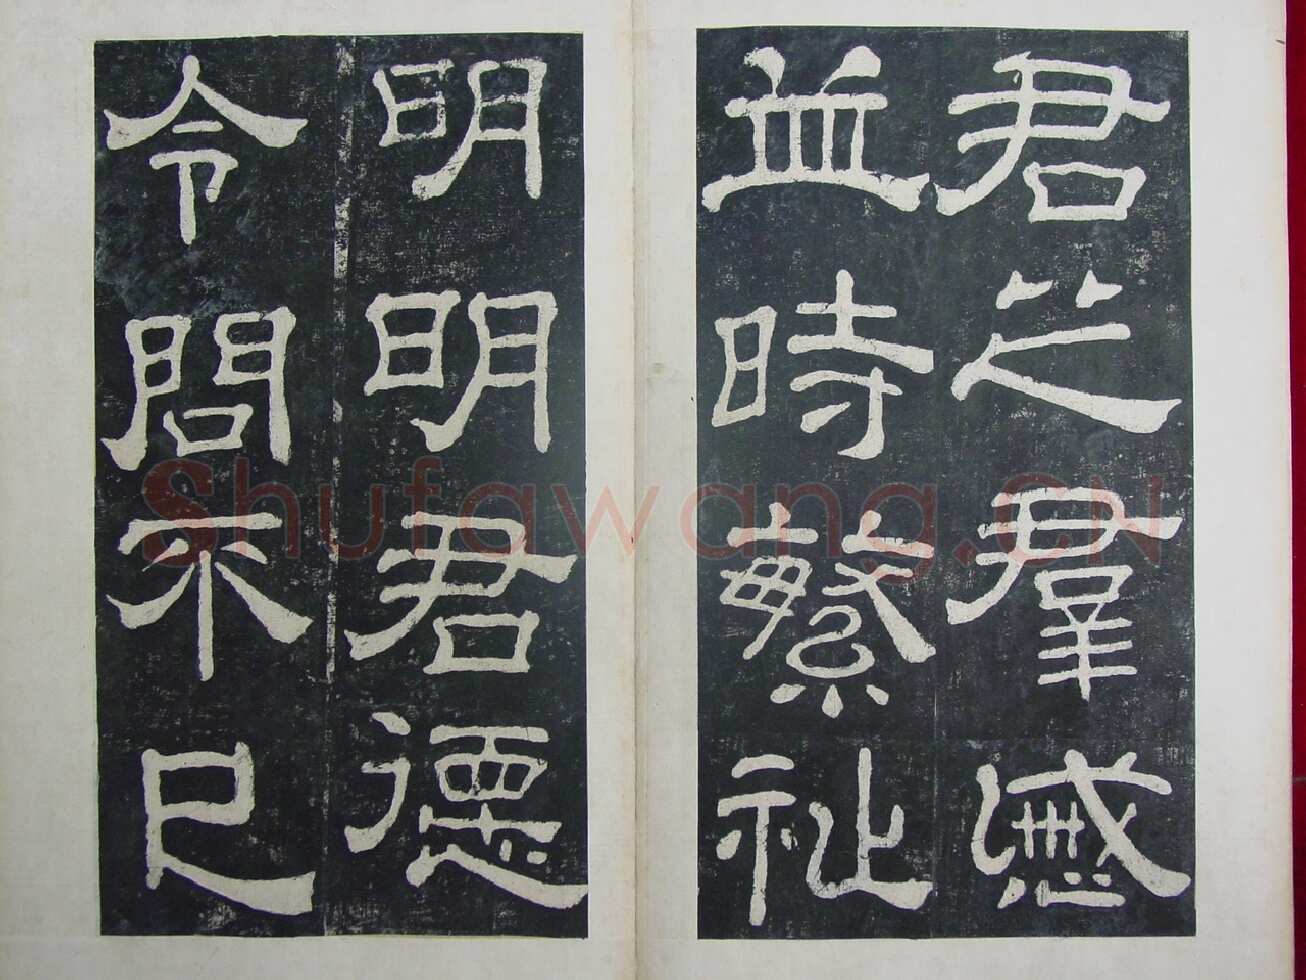 君之羣慼
並時繁祉
明明君德
令問不已
Shufawang.CN